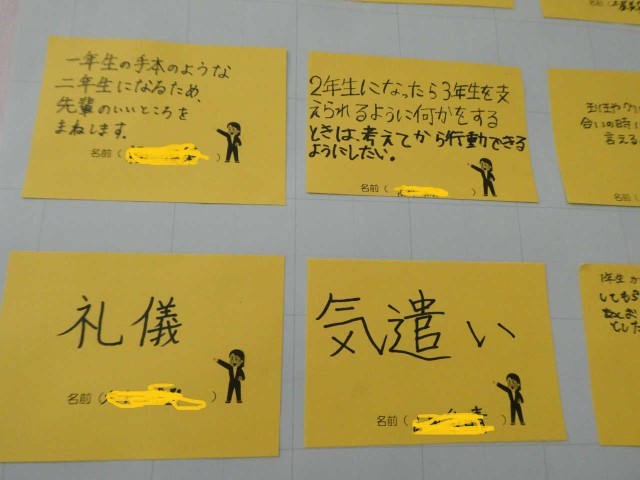 一年生の手本のような
二年生になるため、
先輩のいいところを
まねします。
名前（
2年生になったら3年生を支
えられるように何かをする
ときは、考えてから行動できる
ようにしたい。
名前（
合いの時
言える
名前（
礼儀
名前（ ）
気遣い
名前（ ）
1年生か
してもら
とした